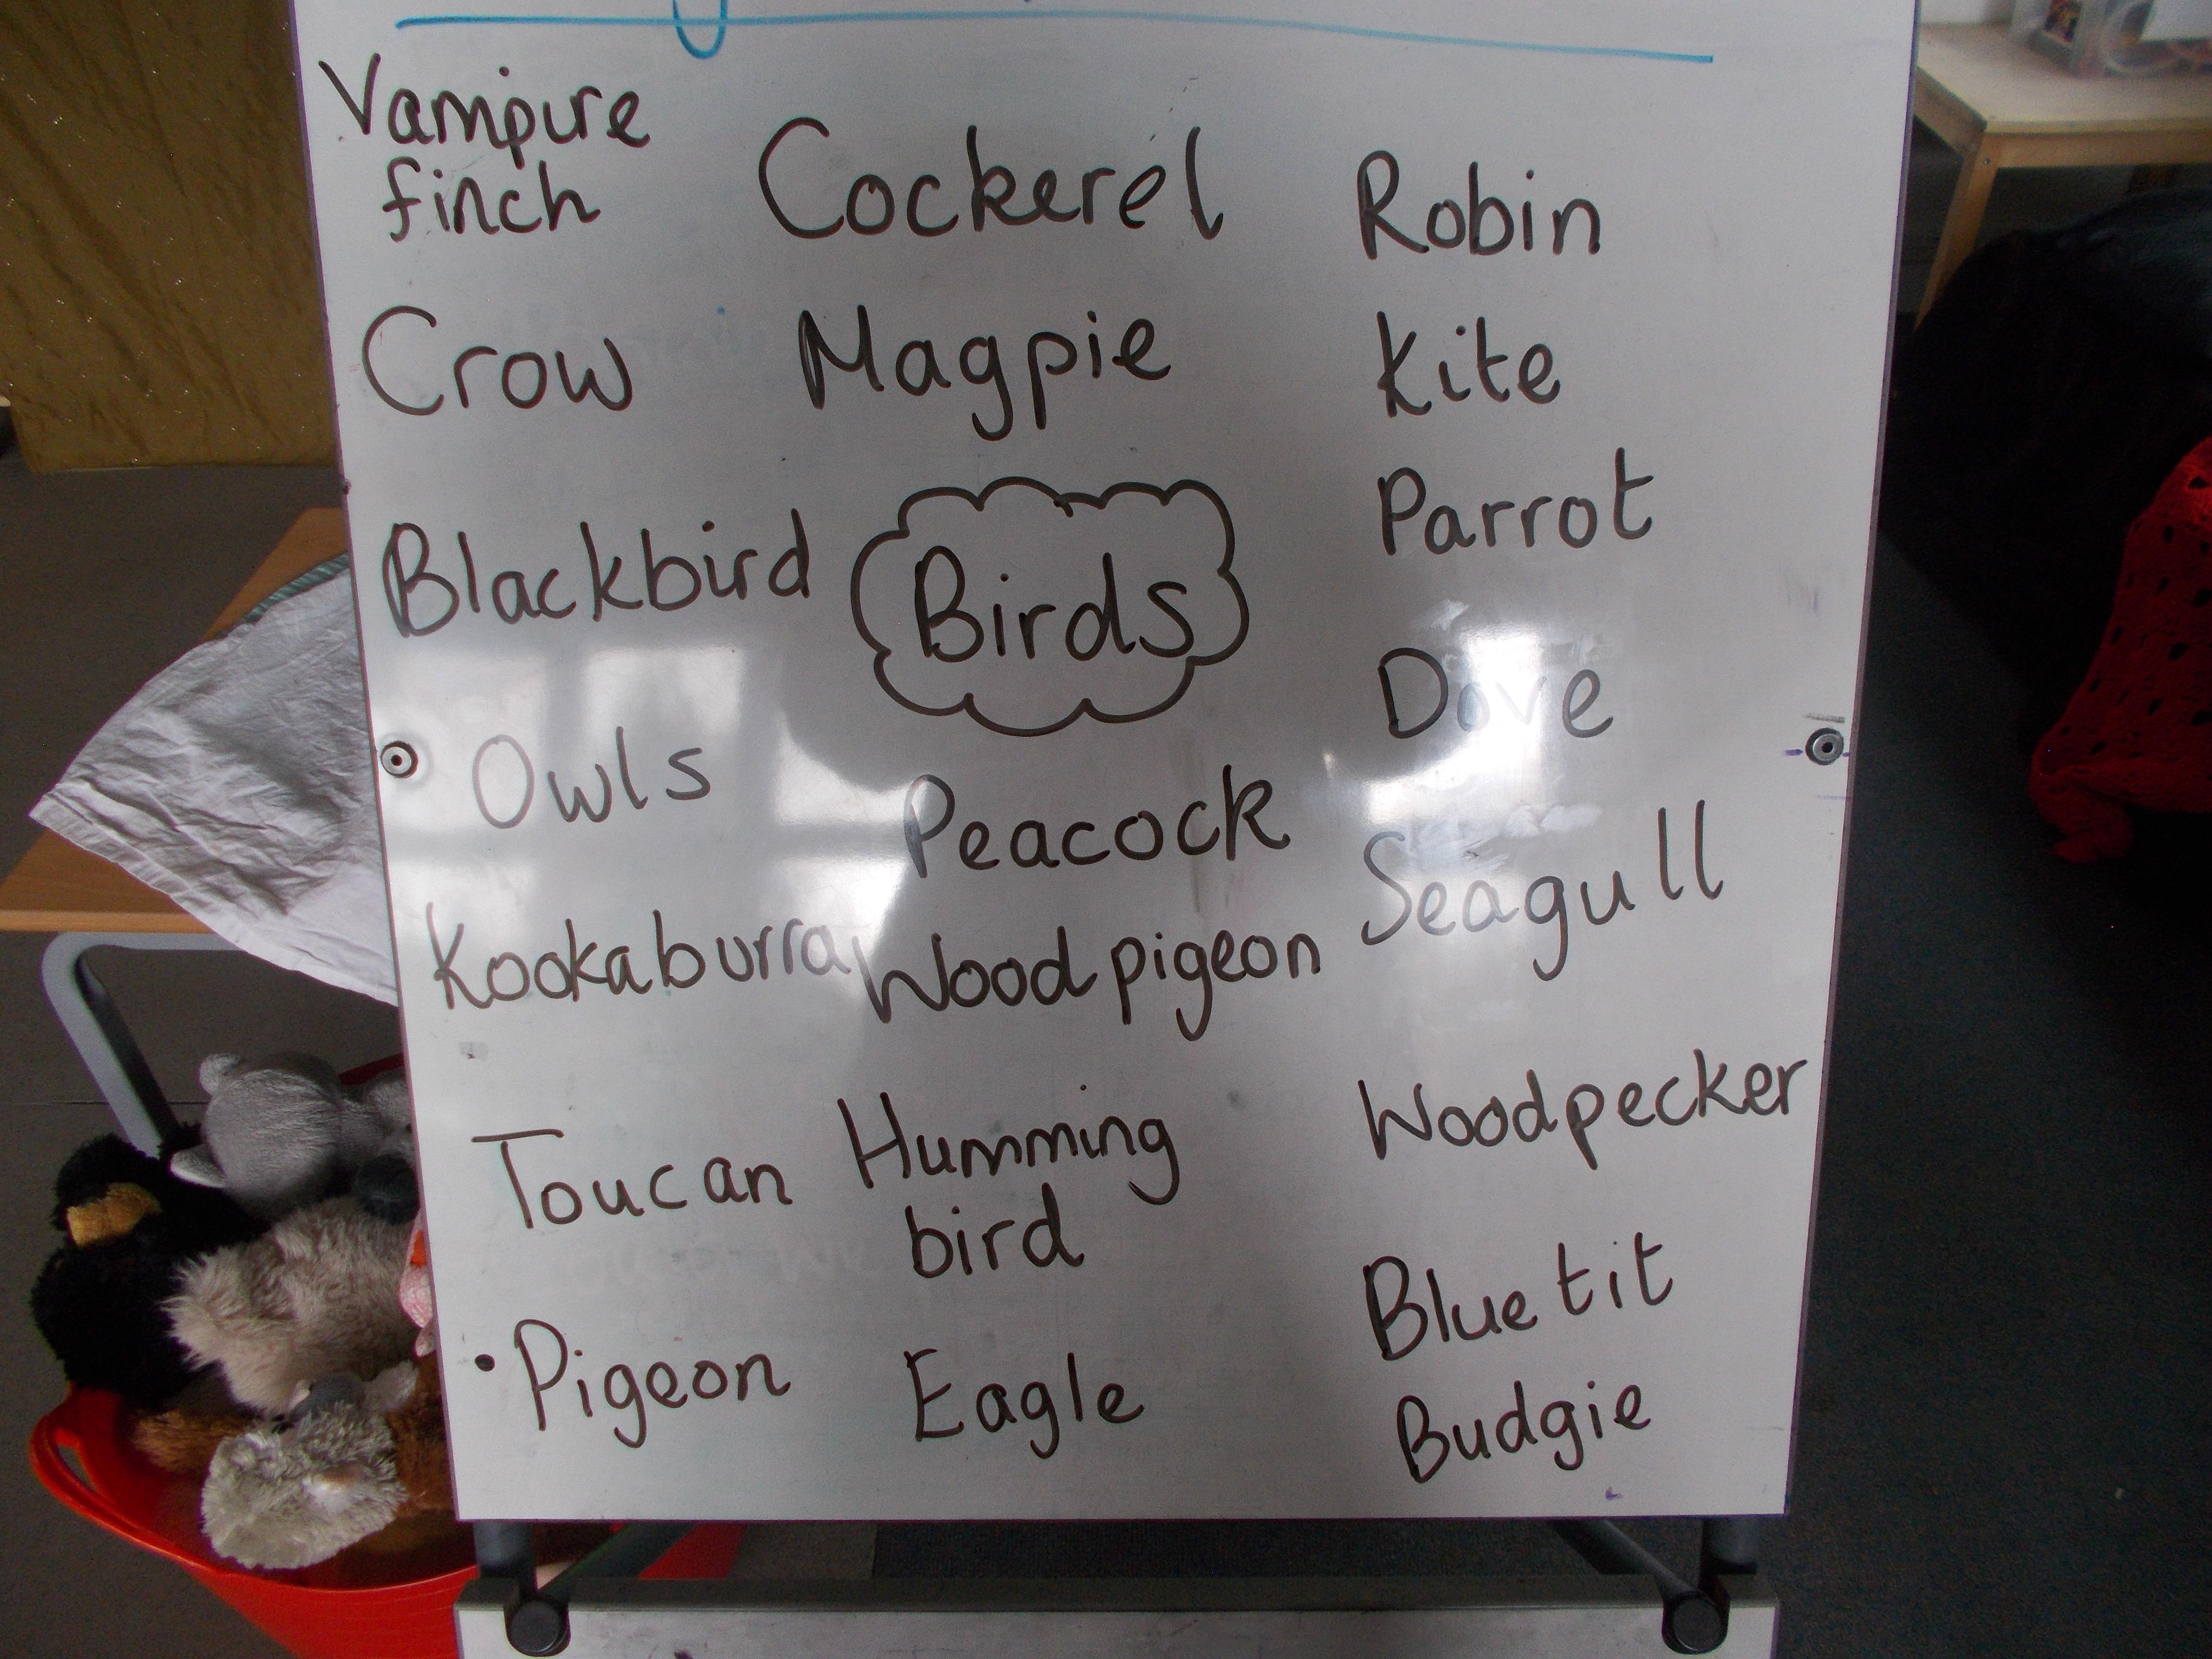 Vampire
finch
Crow
Blackbird
Owls
Kookaburra
Toucan
• Pigeon
Cockerel
Magpie
Birds
Peacock
Wood pigeon
Humming
bird
Eagle
Robin
Kite
Parrot
Dove
Seagull
Woodpecker
Blue tit
Budgie